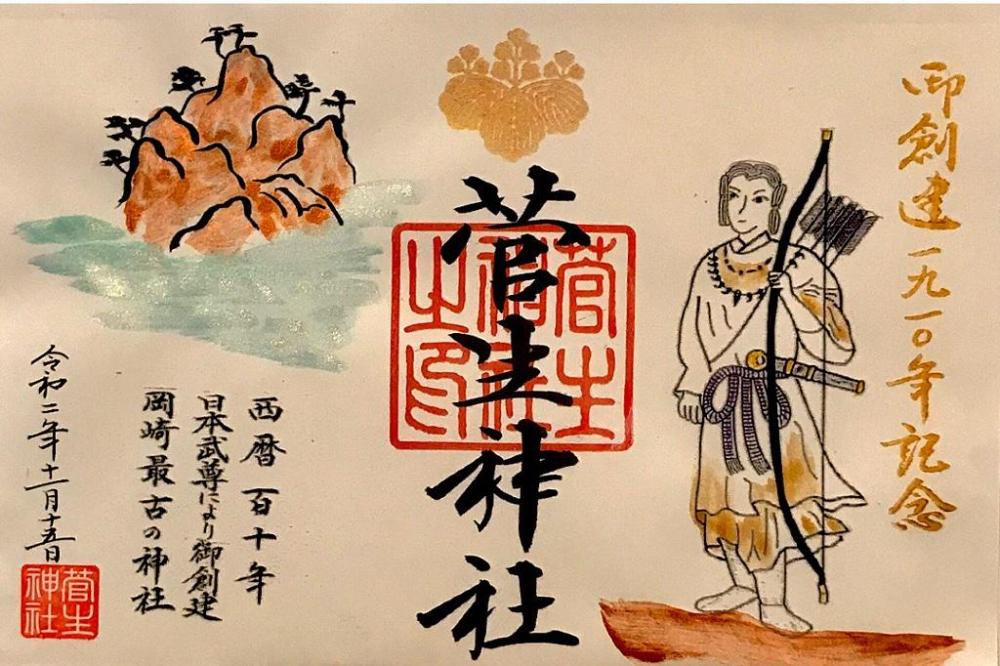 御創建一九一〇年記念
菅生神社
菅生神社之印
西暦百十年
日本武尊により御創建
岡崎最古の神社
令和二年十一月十五日
菅生神社